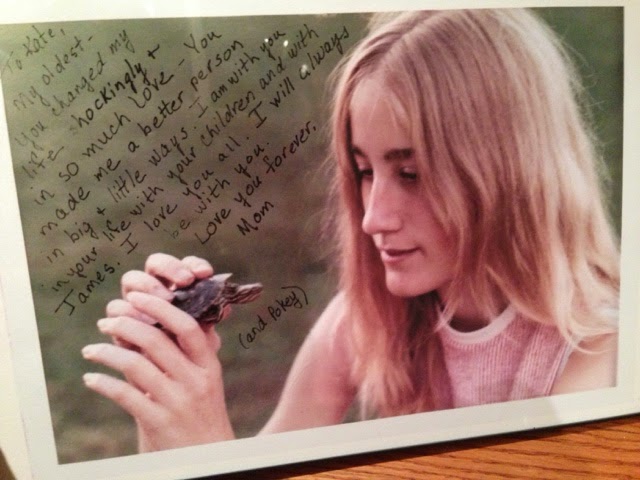 To Kate,
My oldest-
You changed my
life shockingly +
in so much love - You
made me a better person
in big + little ways. I am with you
in your life with your children and with
James. I love you all. I will always
be with you.
Love you forever,
Mom
(and Pokey)